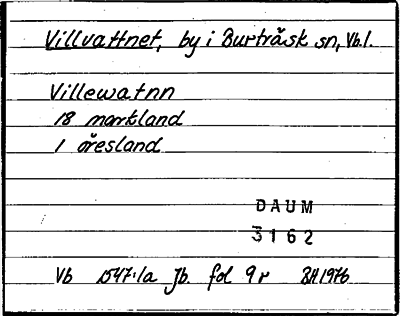 Villvattnet, by i Burträsk sn, Vb.l.
Villewatnn
18 markland
1 öresland
DAUM
3162
Vb 1547:1a Jb. fol 9 r BH1976